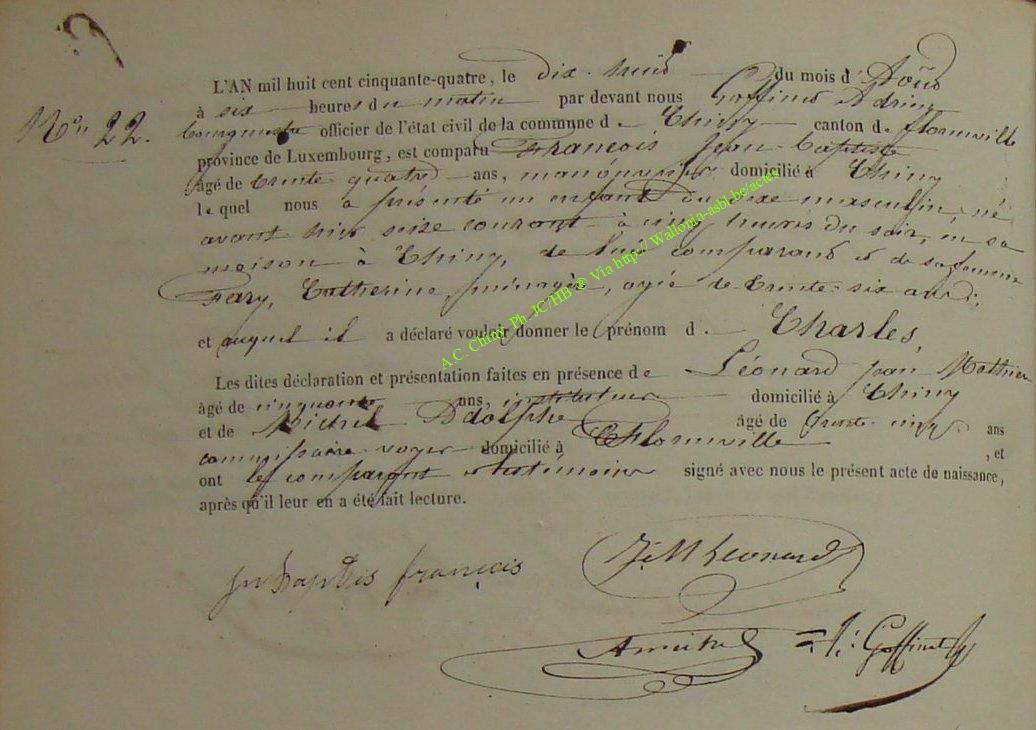 L'AN mil huit cent cinquante-quatre, le dix-huit du mois d'Août
à six heures du matin par devant nous Goffinet Adrien
N° 22. bourgmestre officier de l'état civil de la commune de Chiny canton de Florenville
province de Luxembourg, est comparu François Jean Baptiste
âgé de trente quatre ans, manouvrier domicilié à Chiny
lequel nous a présenté un enfant du sexe masculin, né
avant hier seize courant à cinq heures du soir, en sa
maison à Chiny, de lui comparant et de sa femme
Fary, Catherine, ménagère, agée de trente-six ans;
et auquel il a déclaré vouloir donner le prénom de Charles,
Les dites déclaration et présentation faites en présence de Léonard Jean Mathieu
âgé de cinquante ans, instituteur domicilié à Chiny
et de Michel Adolphe âgé de trente cinq ans
commissaire voyer domicilié à Florenville, et
ont le comparant et témoins signé avec nous le présent acte de naissance,
après qu'il leur en a été fait lecture.
Jn Baptis françois J: M Leonard
A Michel = J: Goffinet
A.C. Chiny Ph JC/HB ® Via http:// Wallonia-asbl.be/actas